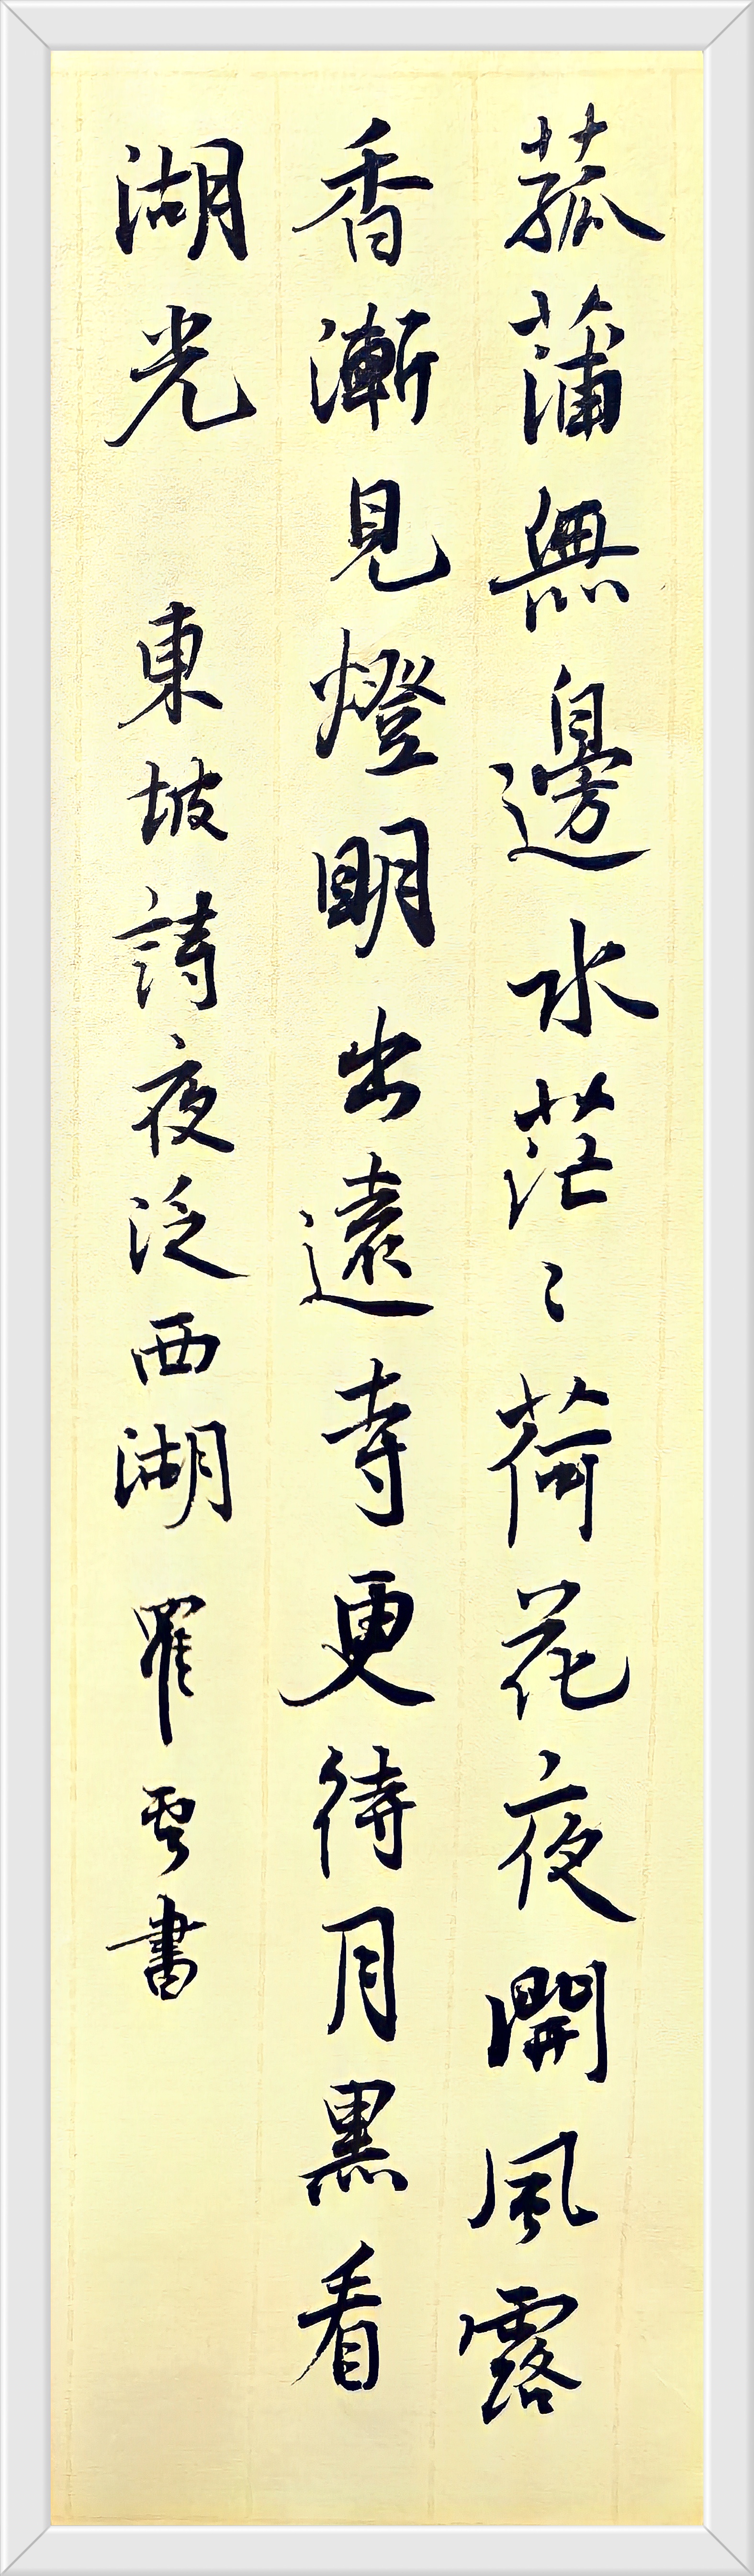 菰蒲無邊水茫〻荷花夜開風露
香漸見燈明出遠寺更待月黑看
湖光 東坡詩夜泛西湖 書